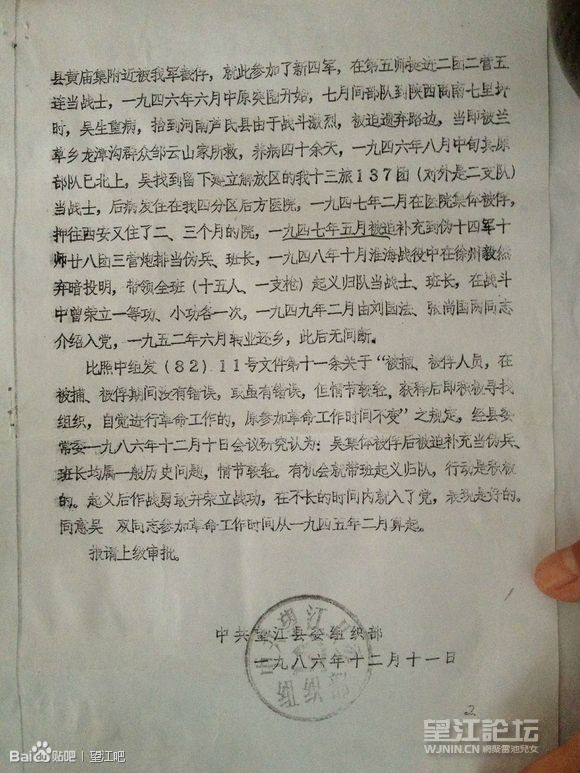 县黄庙集附近被我军截俘，就此参加了新四军，在第五师挺进二团二营五
连当战士，一九四六年六月中原突围开始，七月间部队到陕西商南七里坪
时，吴生重病，抬到河南芦氏县由于战斗激烈，被迫遗弃路边，当即被兰
草乡龙潭沟群众邹云山家所救，养病四十余天，一九四六年八月中旬其原
部队已北上，吴找到留下建立解放区的我十三旅137团（对外是二支队）
当战士，后病发住在我四分区后方医院，一九四七年二月在医院集体被俘，
押往西安又住了二、三个月的院，一九四七年五月被迫补充到伪十四军十
师廿八团三营炮排当伪兵、班长，一九四八年十月淮海战役中在徐州毅然
弃暗投明，带领全班（十五人、一支枪）起义归队当战士、班长，在战斗
中曾荣立一等功、小功各一次，一九四九年二月由刘国法、张尚国两同志
介绍入党，一九五二年六月转业还乡，此后无间断。
比照中组发（82）11号文件第十一条关于“被捕、被俘人员，在
被捕、被俘期间没有错误，或虽有错误，但情节较轻，获释后即积极寻找
组织，自觉进行革命工作的，原参加革命工作时间不变”之规定，经县委
常委一九八六年十二月十日会议研究认为：吴集体被俘后被迫补充当伪兵、
班长均属一般历史问题，情节较轻。有机会就带班起义归队，行动是积极
的。起义后作战勇敢并荣立战功，在不长的时间内就入了党，表现是好的。
同意吴 双同志参加革命工作时间从一九四五年二月算起。
报请上级审批。
中共望江县委组织部
一九八六年十二月十一日
望江
组织部
2
Baidu贴吧 | 望江吧
望江论坛
WJNIN.CN 網聚雷池兒女